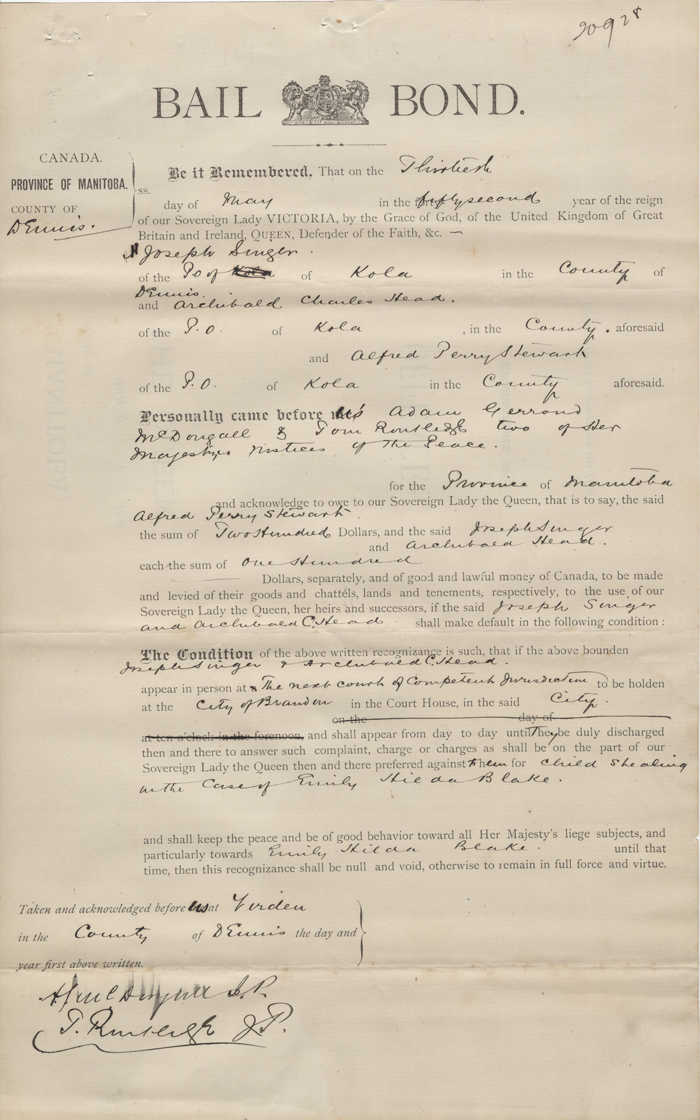 20928
BAIL BOND.
CANADA.
PROVINCE OF MANITOBA.
COUNTY OF
Dennis.
ss.
Be it Remembered, That on the Thirtieth
day of May in the fiftysecond year of the reign
of our Sovereign Lady VICTORIA, by the Grace of God, of the United Kingdom of Great
Britain and Ireland, QUEEN, Defender of the Faith, &c. —
Joseph Singer.
of the Po of Kola of Kola in the County of
Dennis.
and Archibald Charles Head.
of the P.O. of Kola , in the County. aforesaid
and Alfred Perry Stewart
of the P.O. of Kola in the County aforesaid.
Personally came before us Adam Gerrond
McDougall & Tom Routledge two of Her
Majestys Justices of the Peace.
for the Province of Manitoba
and acknowledge to owe to our Sovereign Lady the Queen, that is to say, the said
Alfred Perry Stewart.
the sum of Two Hundred Dollars, and the said Joseph Singer
and Archibald Head.
each the sum of One Hundred
Dollars, separately, and of good and lawful money of Canada, to be made
and levied of their goods and chattels, lands and tenements, respectively, to the use of our
Sovereign Lady the Queen, her heirs and successors, if the said Joseph Singer
and Archibald C. Head shall make default in the following condition :
The Condition of the above written recognizance is such, that if the above bounden
Joseph Singer & Archibald C. Head.
appear in person at The next court of Competent Jurisdiction to be holden
at the City of Brandon in the Court House, in the said City.
on the day of
at ten o'clock in the forenoon, and shall appear from day to day until They be duly discharged
then and there to answer such complaint, charge or charges as shall be on the part of our
Sovereign Lady the Queen then and there preferred against them for Child Stealing
in the Case of Emily Hilda Blake.
and shall keep the peace and be of good behavior toward all Her Majesty's liege subjects, and
particularly towards Emily Hilda Blake. until that
time, then this recognizance shall be null and void, otherwise to remain in full force and virtue.
Taken and acknowledged before us at Virden
in the County of Dennis the day and
year first above written.
J.P.
T. Routledge J.P.